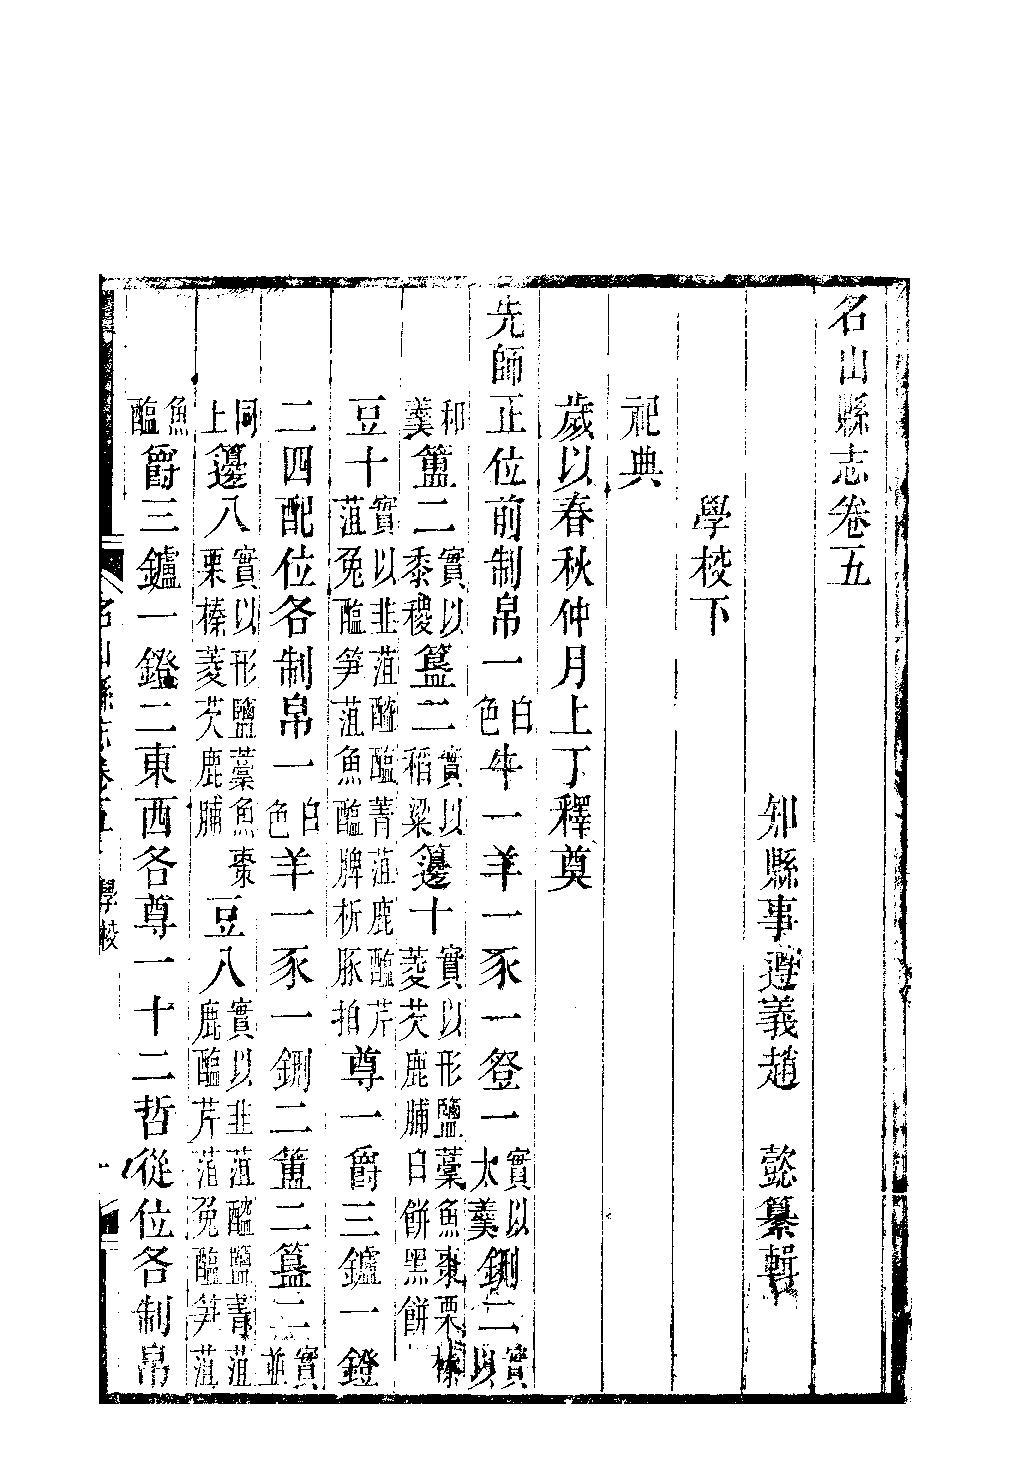 名山縣志卷五
知縣事遵義趙　懿纂輯
學校下
祀典
歲以春秋仲月上丁釋奠
先師正位前制帛一白色牛一羊一豕一登一實以太羹鉶二實以
和羹簠二實以黍稷簋二實以稻粱籩十實以形鹽藁魚棗栗榛菱芡鹿脯白餅黑餅
豆十實以韭菹醓醢菁菹鹿醢芹菹兔醢笋菹魚醢脾析豚拍尊一爵三鑪一鐙
二四配位各制帛一白色羊一豕一鉶二簠二簋二實並
同上籩八實以形鹽藁魚棗栗榛菱芡鹿脯豆八實以韭菹醓醢菁菹鹿醢芹菹兔醢笋菹
魚醢爵三鑪一鐙二東西各尊一十二哲從位各制帛
名山縣志卷五 學校 一